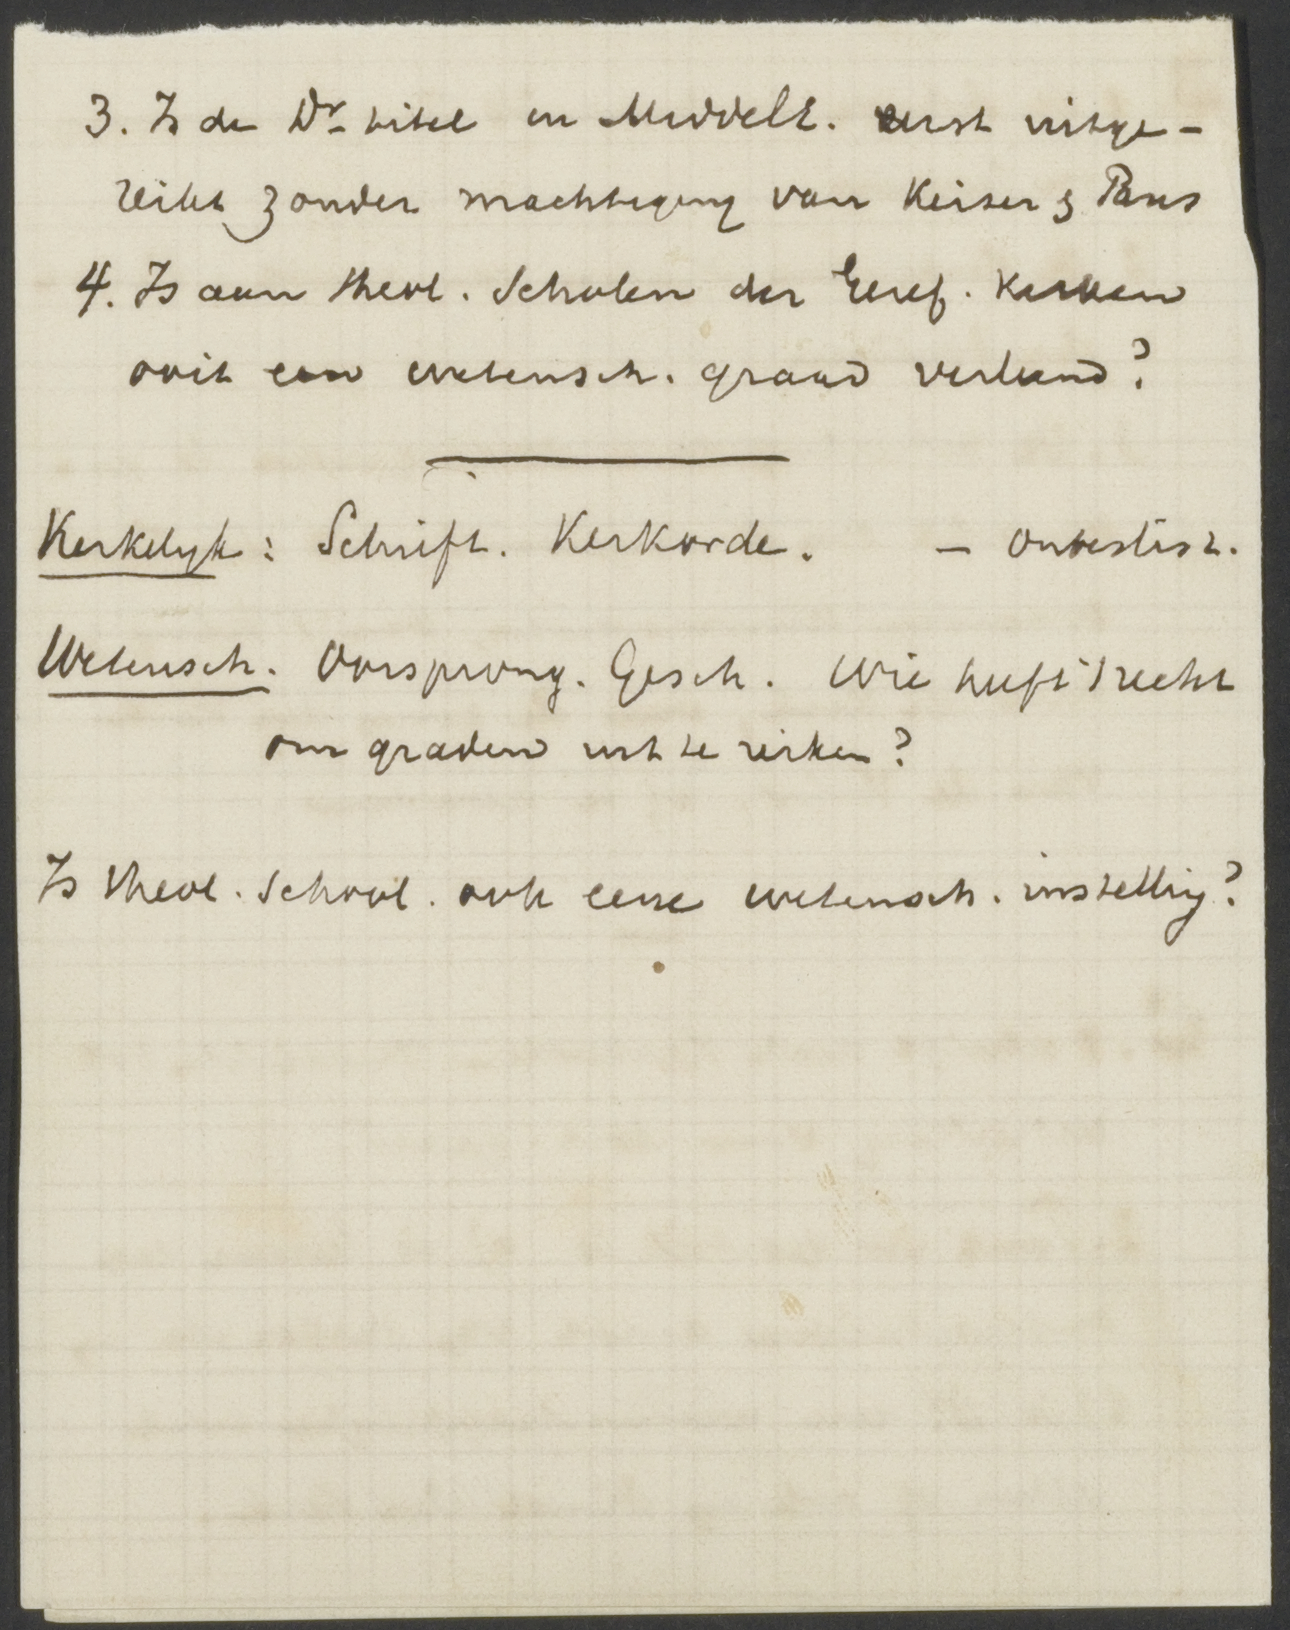 3. Is de Dr-titel in Middelt. eerst uitge-
reikt zonder machtiging van Keizer & Paus
4. Is aan theol. Scholen der Geref. Kerken
ooit een wetensch. graad verleend?
Kerkelyk: Schrift. Kerkorde. - onbeslist.
Wetensch. Oorsprong. Gesch. Wie heeft 't recht
om graden uit te reiken?
Is theol. School. ook eene wetensch. instellig?